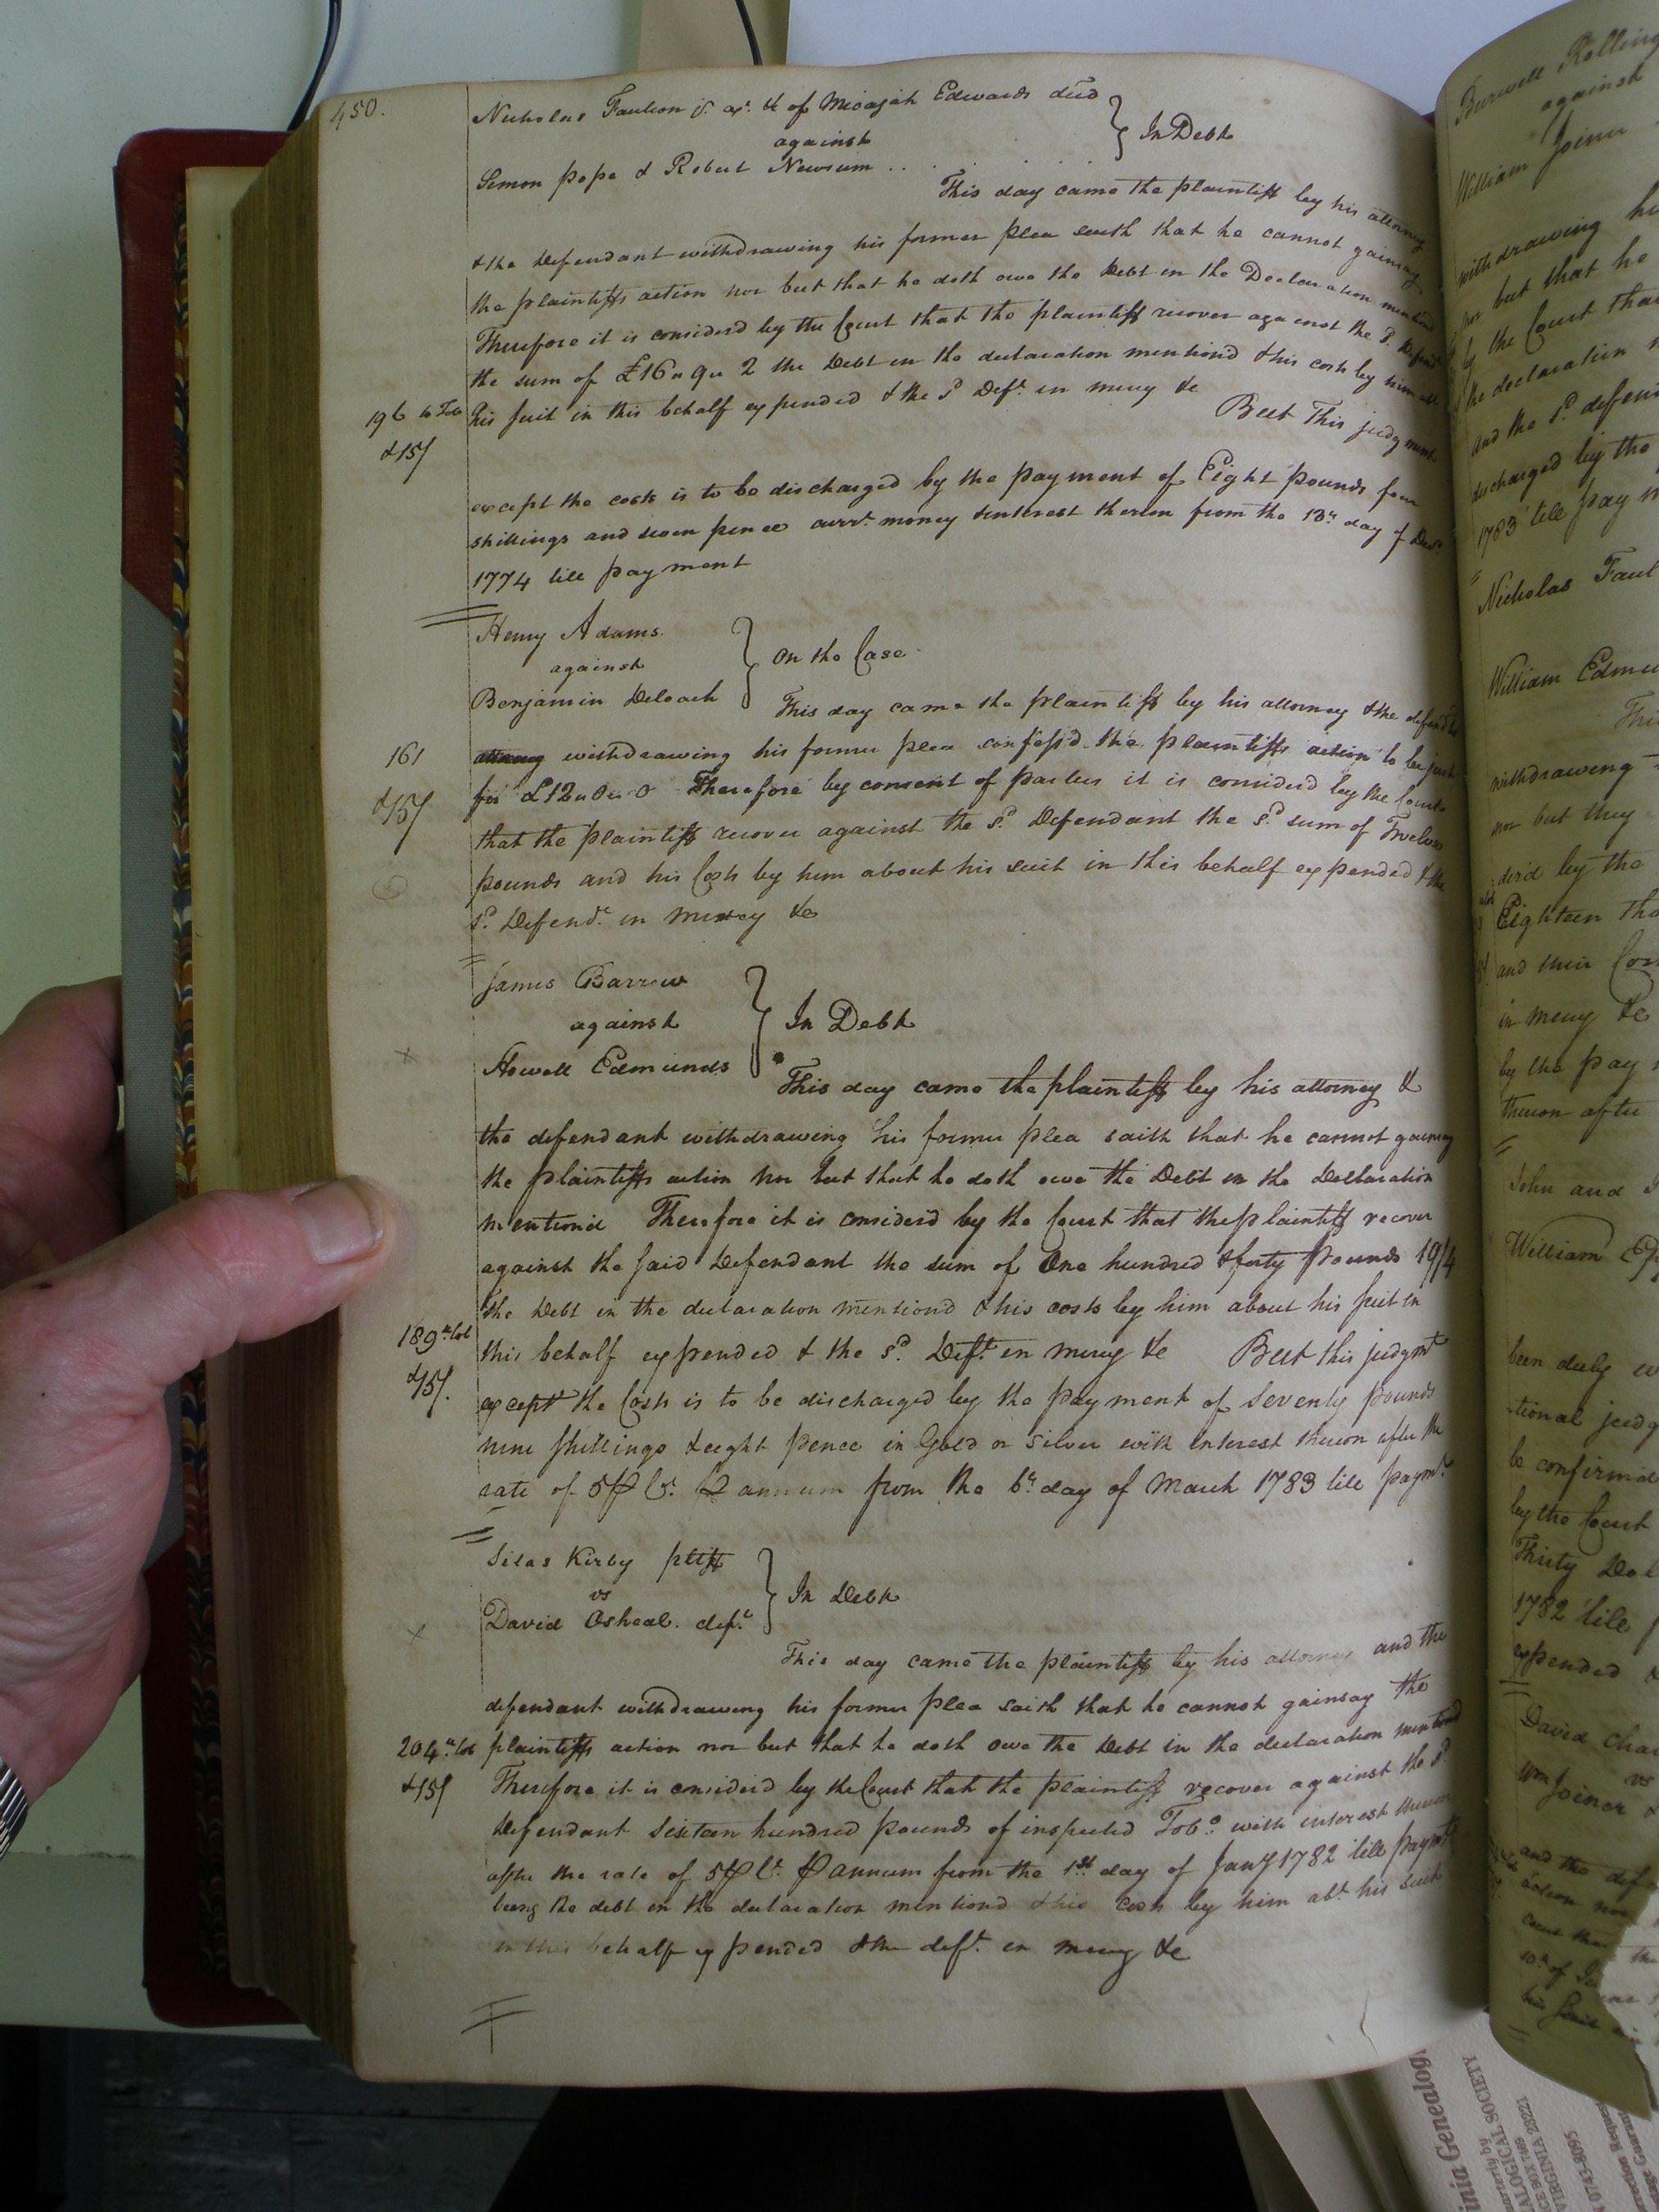 450.
Nicholas Faulcon jr. exr. &c of Micajah Edwards decd
against
In Debt
Simon pope & Robert Newsum
This day came the plaintiff by his attorney
& the Defendant withdrawing his former plea saith that he cannot gainsay
the plaintiffs action nor but that he doth owe the Debt in the Declaration mentiond
Therefore it is considerd by the Court that the plaintiff recover against the sd. Defendt
the sum of £16 " 9 " 2 the Debt in the declaration mentiond & his costs by him abt
196 lb Tob
his suit in this behalf expended & the sd Deft. in mercy &c
But This judgment
& 15/
except the costs is to be discharged by the payment of Eight pounds four
shillings and seven pence currt. money & interest thereon from the 13th day of Decr.
1774 till payment
Henry Adams.
against
On the Case
Benjamin Deloach
This day came the plaintiff by his attorney & the defendt
161
attorney withdrawing his former plea confess'd the plaintiffs action to be just
& 15/
for £12 " 0 " 0 Therefore by consent of parties it is considerd by the Court
that the plaintiff recover against the sd. Defendant the sd. sum of Twelve
pounds and his Costs by him about his suit in this behalf expended & the
sd. Defendt. in mercy &c
James Barrow
against
In Debt
Howell Edmunds
This day came the plaintiff by his attorney &
the defendant withdrawing his former plea saith that he cannot gainsay
the plaintiffs action nor but that he doth owe the Debt in the Declaration
mentiond Therefore it is considerd by the Court that the plaintiff recover
against the said Defendant the sum of One hundred & forty pounds 19/4
the Debt in the declaration mentiond & his costs by him about his suit in
189
this behalf expended & the sd. Deft. in mercy &c But this judgmt
& 15/.
except the Costs is to be discharged by the payment of Seventy pounds
nine shillings & eight pence in Gold or Silver with interest thereon after the
rate of 5 ₱ Ct. ₱ annum from the 6th day of March 1783 till paymt.
Silas Kirby pltff
vs
In Debt
David Osheal. deft.
This day came the plaintiff by his attorney and the
defendant withdrawing his former plea saith that he cannot gainsay the
204
plaintiffs action nor but that he doth owe the Debt in the declaration mentiond
& 15/
Therefore it is considerd by the Court that the plaintiff recover against the sd
defendant Sixteen hundred pounds of inspected Tobo. with interest thereon
after the rate of 5 ₱ Ct. ₱ annum from the 1st day of Jany 1782 till paymt
being the debt in the declaration mentiond & his costs by him abt. his suit
in this behalf expended & the deft. in mercy &c
Burwell Rolling
against
William Joiner
withdrawing his
nor but that he
by the Court that
the declaration
and the sd. defend
discharged by the
1783 till pay
Nicholas Faul
William Edmu
This
withdrawing
nor but they
derd by the
Eighteen Tho
and their Cos
in mercy &c
by the pay
thereon after
John and
William
been duly
tional judg
be confirmd
by the Court
Thirty
1782 till
expended
David Cha
vs
Wm Joiner &
and the def
action nor
inia Genealog
arterly by
ALOGICAL SOCIETY
VIRGINIA 23221
0743-8095